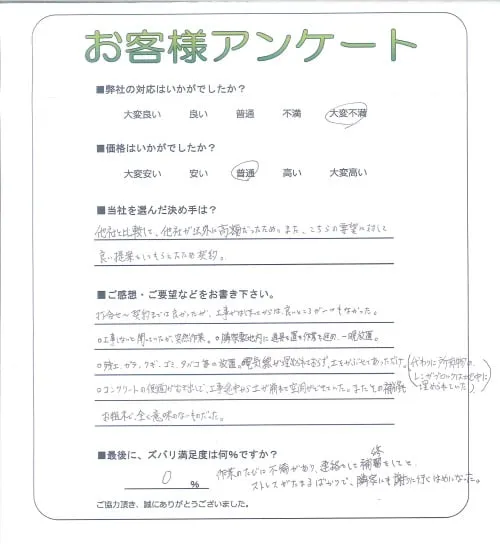 お客様アンケート
■弊社の対応はいかがでしたか？
大変良い 良い 普通 不満 大変不満
■価格はいかがでしたか？
大変安い 安い 普通 高い 大変高い
■当社を選んだ決め手は？
他社と比較して、他社が法外に高額だったため。また、こちらの要望に対して
良い提案をしてもらえたため契約。
■ご感想・ご要望などをお書き下さい。
打合せ〜契約までは良かったが、工事がはじまってからは良いところが一つもなかった。
○工事しないと聞いていたが、突然作業。○隣家敷地内に道具を置き作業を進め、一晩放置。
○残土、ガラ、クギ、ゴミ、タバコ等の放置。電気線が埋められておらず、土をかぶせてあっただけ。
(代わりに所有物の
レンガブロックは土の中に
埋められていた)
○コンクリートの側面がむき出しで、工事途中から土が崩れて空洞ができていた。またその補修
お粗末で、全く意味のないものだった。
■最後に、ズバリ満足度は何％ですか？
0 ％
作業のたびに不備があり、連絡をして補修をしてと、
ストレスがたまるばかりで、隣家にも謝りに行くはめになった。
ご協力頂き、誠にありがとうございました。